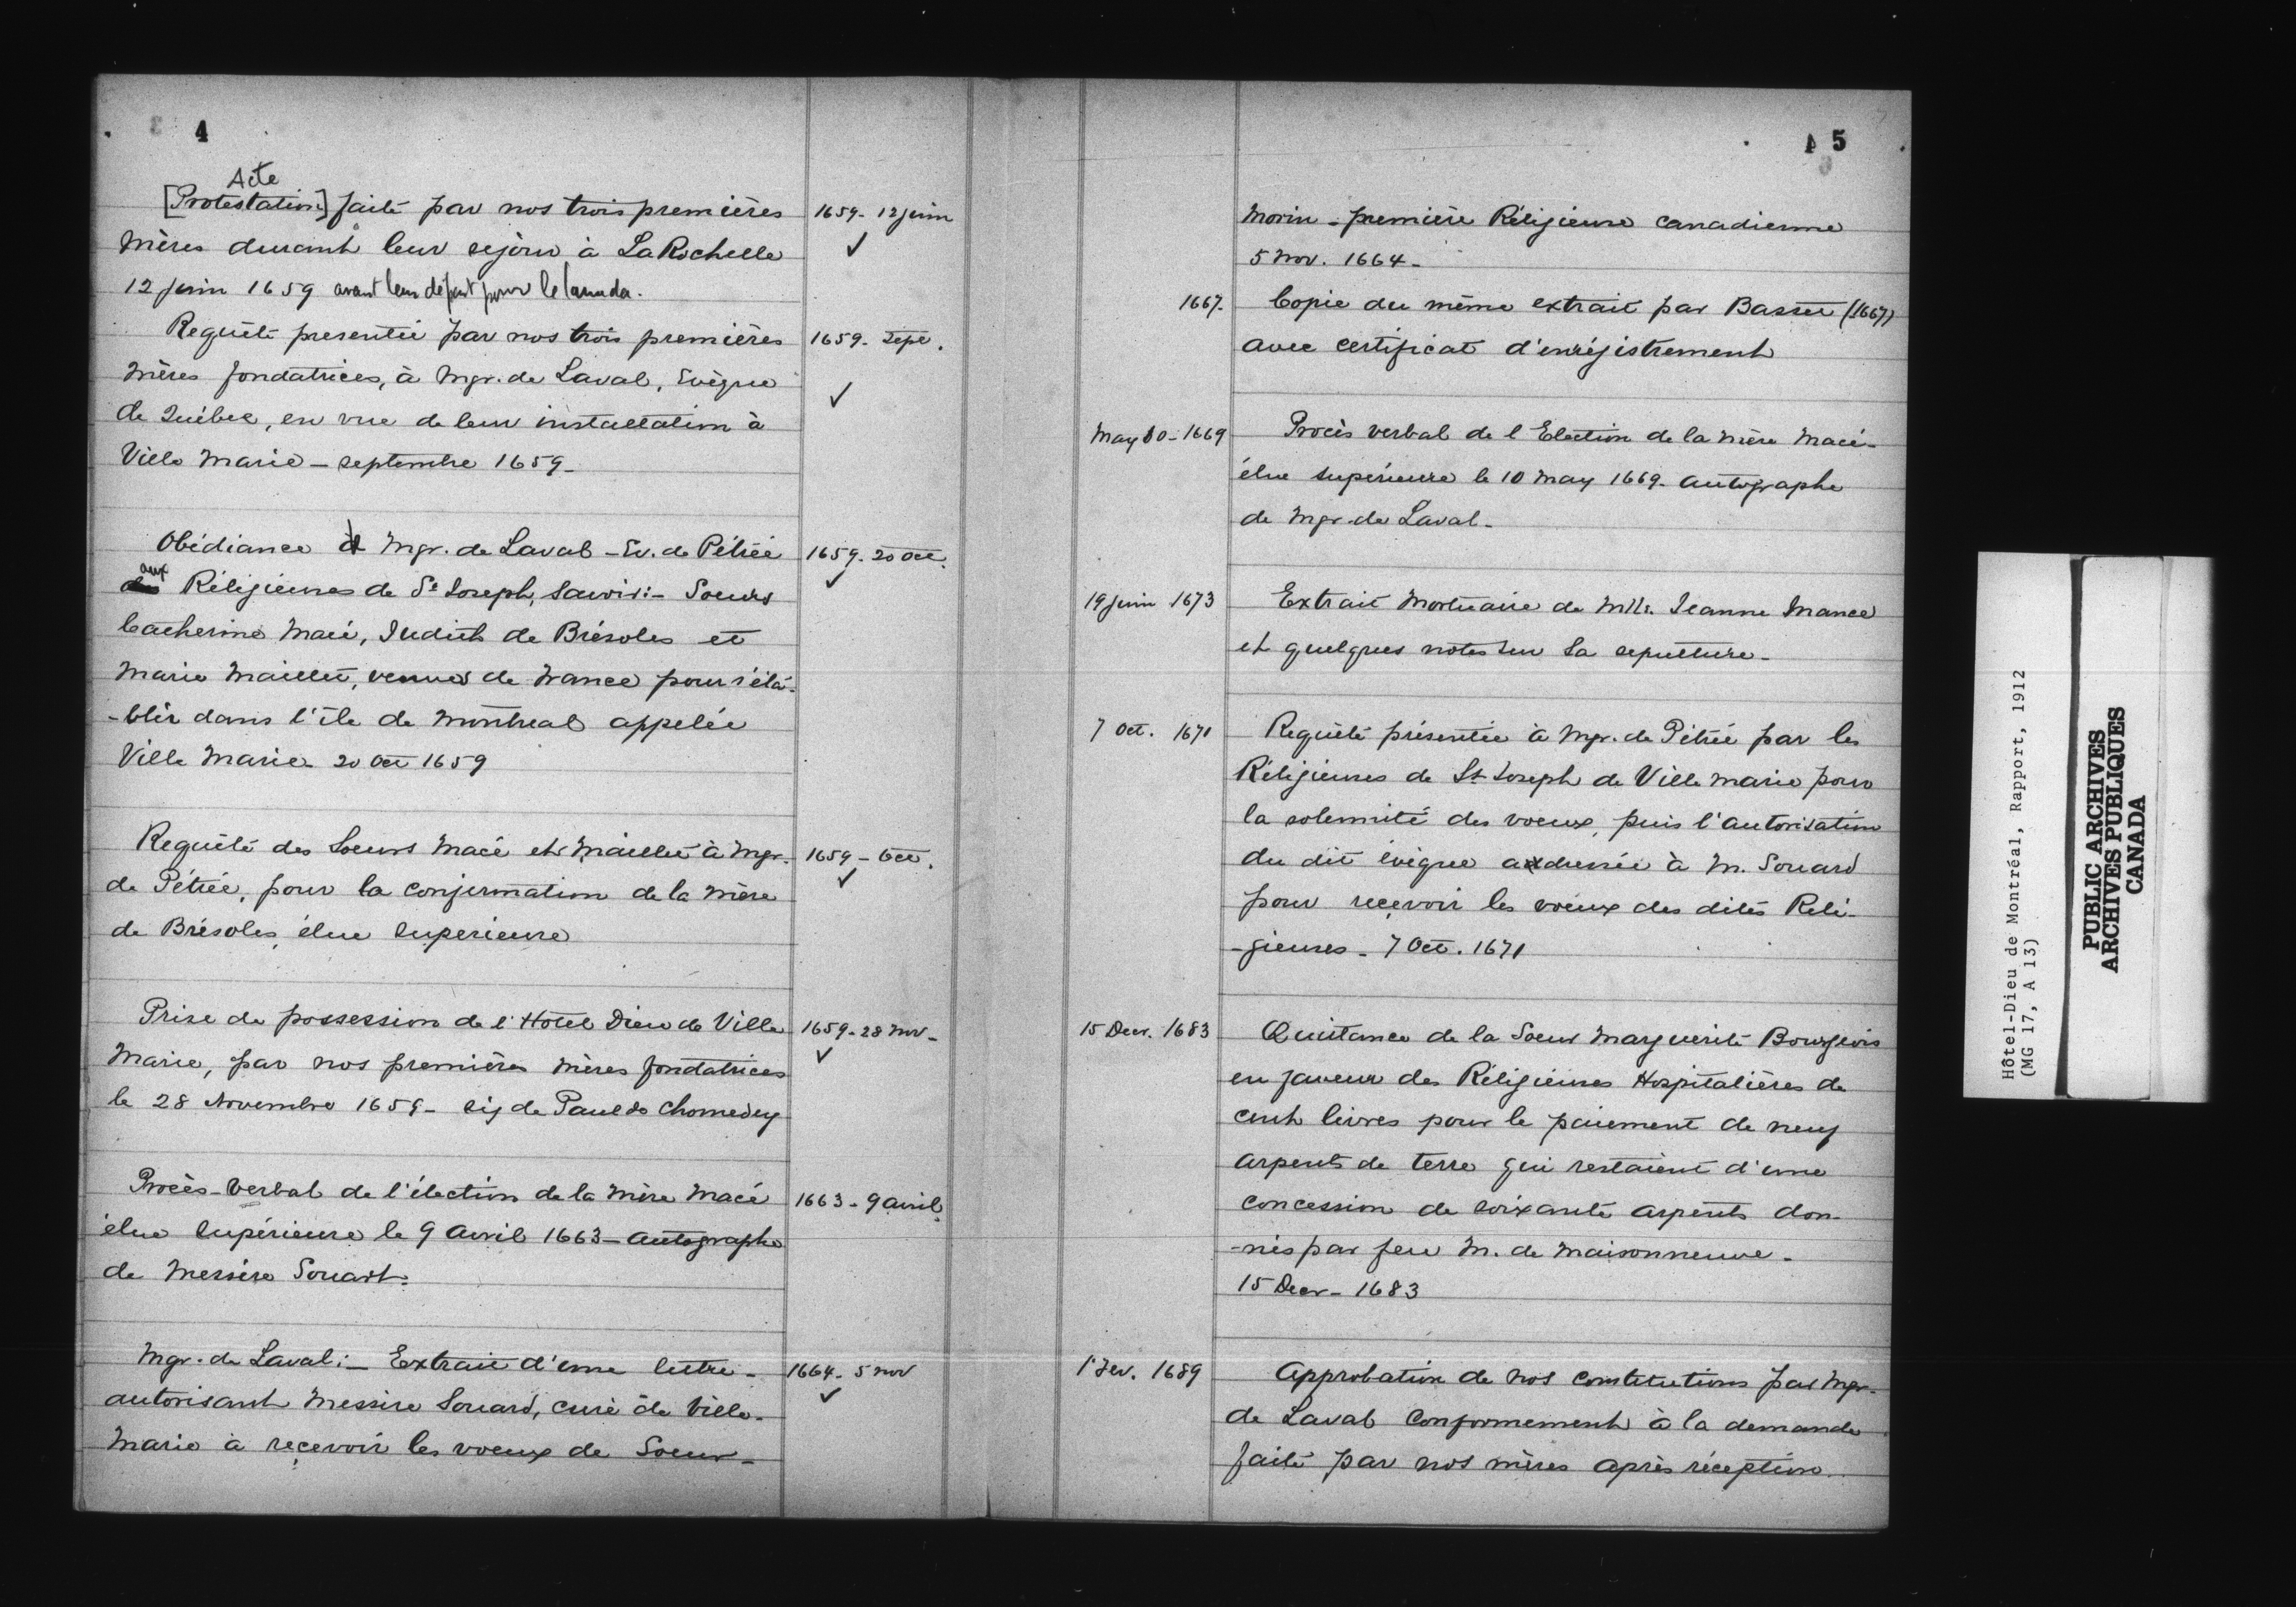 4
Acte
[Protestation] faite par nos trois premières
1659-12 juin
Mères durant leur sejour à La Rochelle
12 juin 1659 avant leur départ pour le Canada.
Requête presentée par nos trois premières
1659- Sept.
Mères fondatrices, à Mgr. de Laval, Evèque
de Québec, en vue de leur installation à
Ville Marie - septembre 1659-
Obédiance d Mgr. de Laval - Ev. de Pétrée
1659-20 Oct.
aux
Réligieuses de St Joseph, savoir:- Soeurs
Catherine Macé, Judith de Brésoles et
Marie Maillet, venues de France pour s'éta-
-blir dans l'île de Montreal appelée
Ville Marie- 20 Oct 1659
Requête des Soeurs Macé et Maillet à Mgr.
1659 - Oct.
de Pétrée, pour la confirmation de la Mère
de Brésoles, élue superieure
Prise de possession de l'Hotel Dieu de Ville
1659-28 Nov-
Marie, par nos premières Mères fondatrices
le 28 Novembre 1659- sig de Paul de Chomedey
Procès-Verbal de l'élection de la Mère Macé
1663-9 avril
élue Supérieure le 9 Avril 1663 - Autographe
de Messire Souart.
Mgr. de Laval:- Extrait d'une lettre-
1664- 5 nov
autorisant Messire Souard, curé de Ville-
Marie à reçevoir les voeux de Soeur-
5
Morin - première Réligieuse canadienne
5 Nov. 1664-
1667-
Copie du même extrait par Basset (1667)
avec certificat d'enrégistrement
May 10-1669
Procès verbal de l'Election de la Mère Macé-
élue supérieure le 10 May 1669- autographe
de Mgr. de Laval-
19 juin 1673
Extrait Mortuaire de Mlle. Jeanne Mance
et quelques notes sur sa sepulture-
7 Oct. 1671
Requête présentée à Mgr. de Pétrée par les
Réligieuses de St Joseph de Ville Marie pour
la solemnité des voeux, puis l'autorisation
du dit évèque addressée à M. Souard
pour reçevoir les voeux des dites Reli-
-gieuses- 7 Oct. 1671
15 Decr. 1683
Quittance de la Soeur Marguerite Bourgeois
en faveur des Réligieuses Hospitalières de
cent livres pour le paiement de neuf
arpents de terre qui restaient d'une
concession de soixante arpents don-
-nés par feu M. de Maisonneuve-
15 Decr- 1683
1 Fev. 1689
Approbation de nos constitutions par Mgr.
de Laval conformement à la demande
faite par nos mères après réception
Hôtel-Dieu de Montréal, Rapport, 1912
(MG 17, A 13)
PUBLIC ARCHIVES
ARCHIVES PUBLIQUES
CANADA